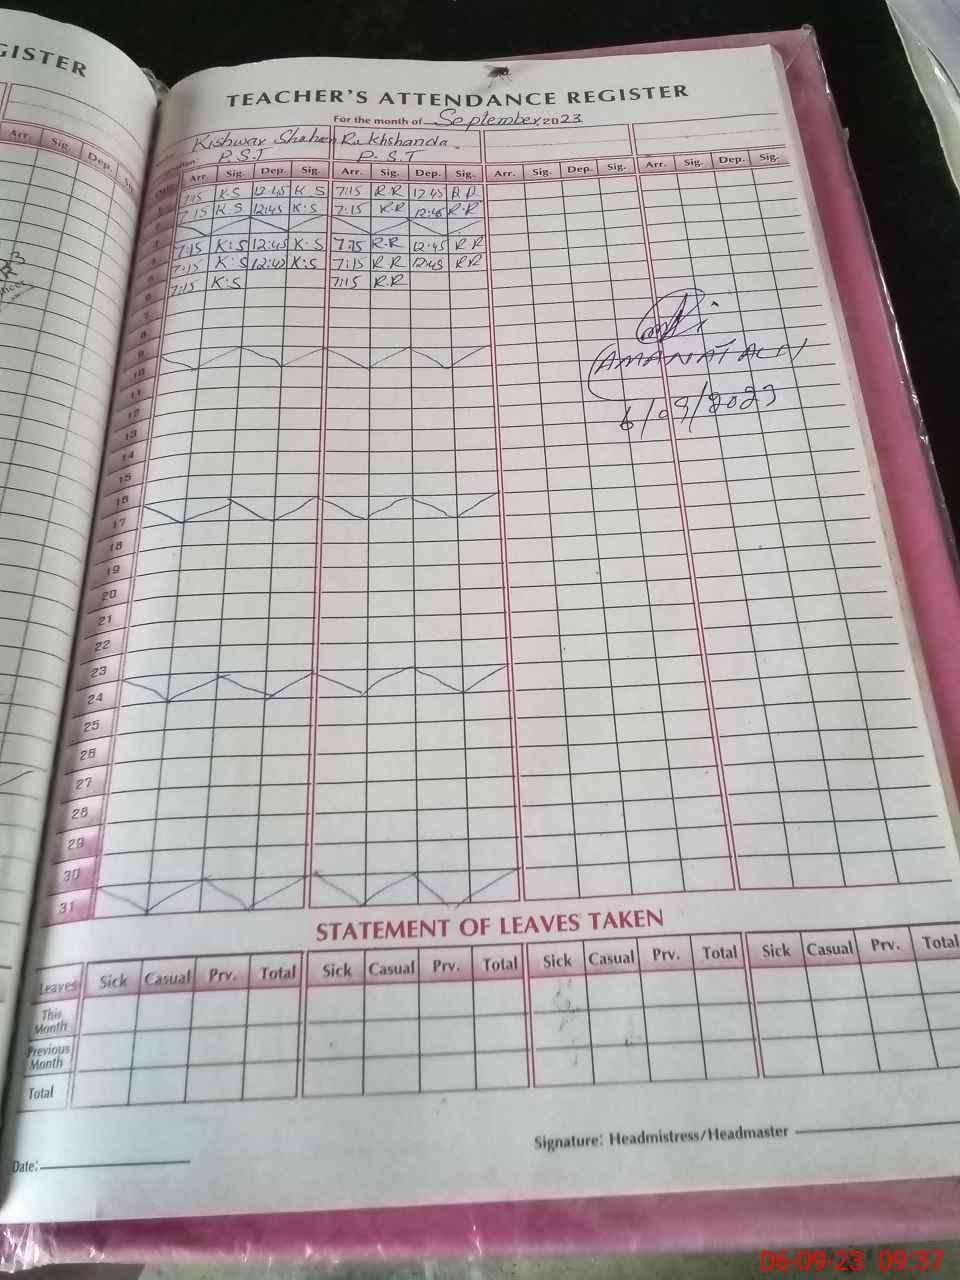 GISTER
Arr. Sig. Dep. Sig.
TEACHER'S ATTENDANCE REGISTER
For the month of September 2023
Kishwar Shaheen Rukhshanda
P.S.T P.S.T
Arr. Sig. Dep. Sig. Arr. Sig. Dep. Sig. Arr. Sig. Dep. Sig. Arr. Sig. Dep. Sig.
1 7:15 K.S 12:45 K.S 7:15 R.R 12:45 R.R
7:15 K.S 12:45 K.S 7:15 R.R 12:45 R.R
3
4 7:15 K:S 12:45 K:S 7:15 R.R 12:45 R R
5 7:15 K:S 12:42 K:S 7:15 R R 12:45 R R
6 7:15 K:S 7:15 R.R
7
8
9
10
11
12
13
14
15
16
17
18
19
20
21
22
23
24
25
26
27
28
29
30
31
AMANAT ALI
6/09/2023
STATEMENT OF LEAVES TAKEN
Leaves Sick Casual Prv. Total Sick Casual Prv. Total Sick Casual Prv. Total Sick Casual Prv. Total
This
Month
Previous
Month
Total
Signature: Headmistress/Headmaster
Date:
06-09-23 09:37